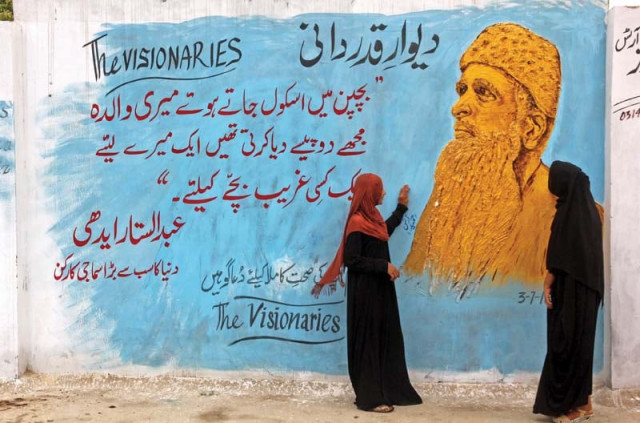 The VISIONARIES
دیوارِ قدردانی
”بچپن میں اسکول جاتے ہوئے میری والدہ
مجھے دو پیسے دیا کرتی تھیں ایک میرے لیئے
ایک کسی غریب بچّے کیلئے۔“
عبدالستار ایدھی
دنیا کا سب سے بڑا سماجی کارکن
کی صحتِ کاملہ کیلئے دُعاگو ہیں
The Visionaries
3-7-1
آرٹس
0314